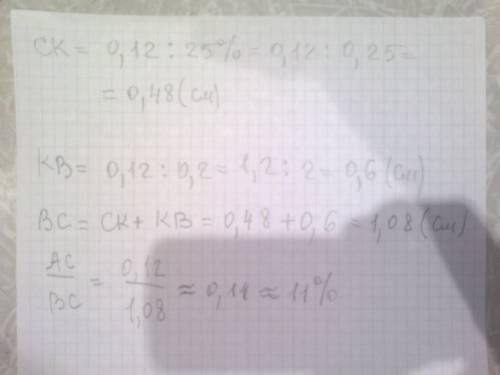 CK = 0,12 : 25% = 0,12 : 0,25 =
= 0,48 (см)
KB = 0,12 : 0,2 = 1,2 : 2 = 0,6 (см)
BC = CK + KB = 0,48 + 0,6 = 1,08 (см)
AC/BC = 0,12/1,08 ≈ 0,11 ≈ 11%